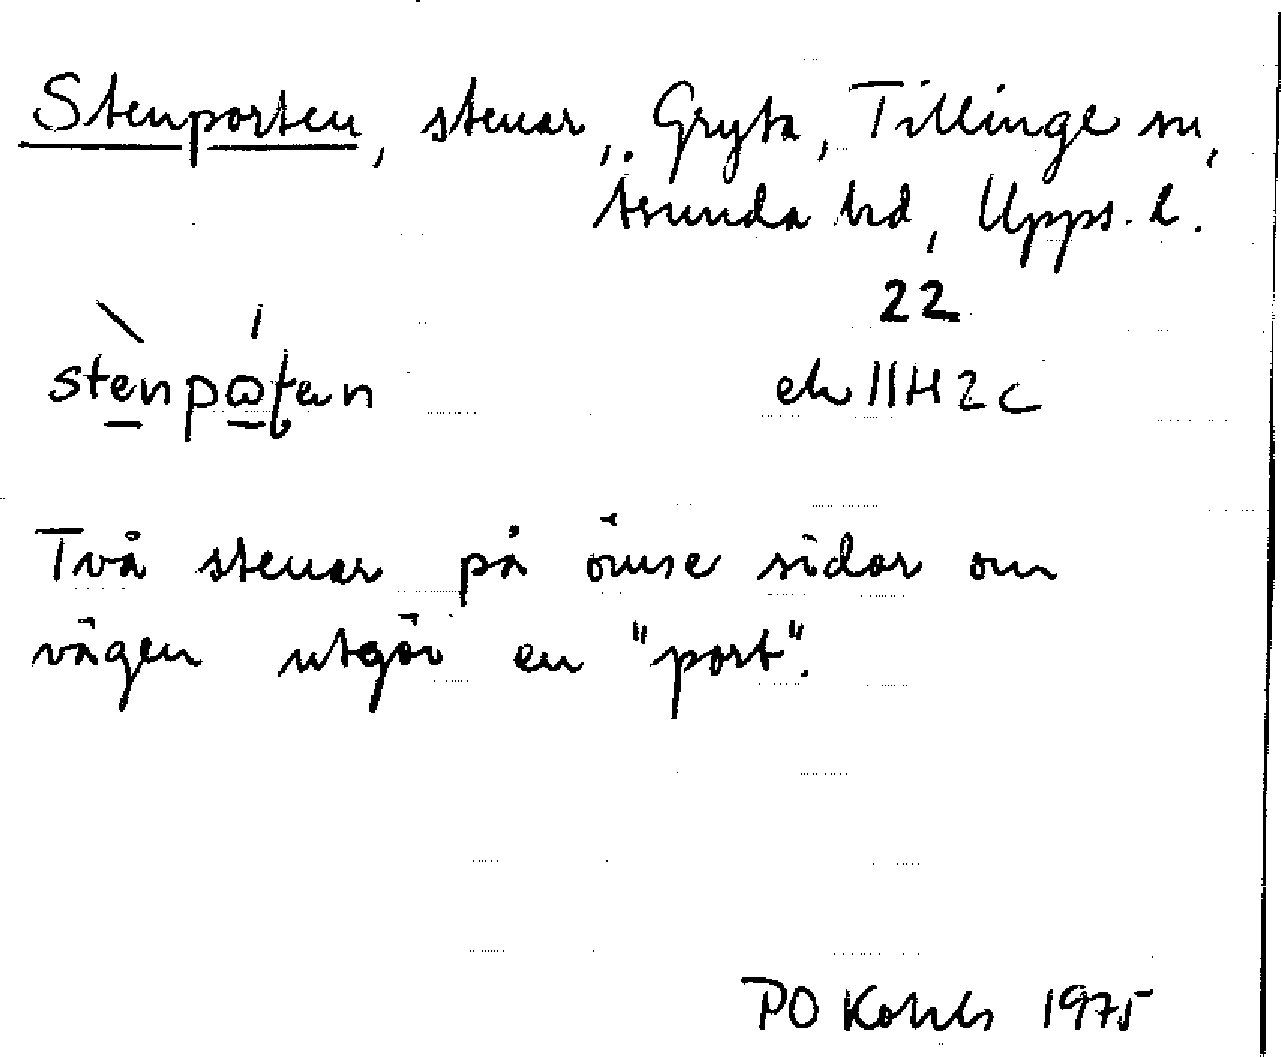 Stenporten, stenar, Gryta, Tillinge sn,
Åsunda hd, Upps. l.
22
stenpåten
ek 11H 2c
Två stenar på ömse sidor om
vägen utgör en "port".
PO 1975